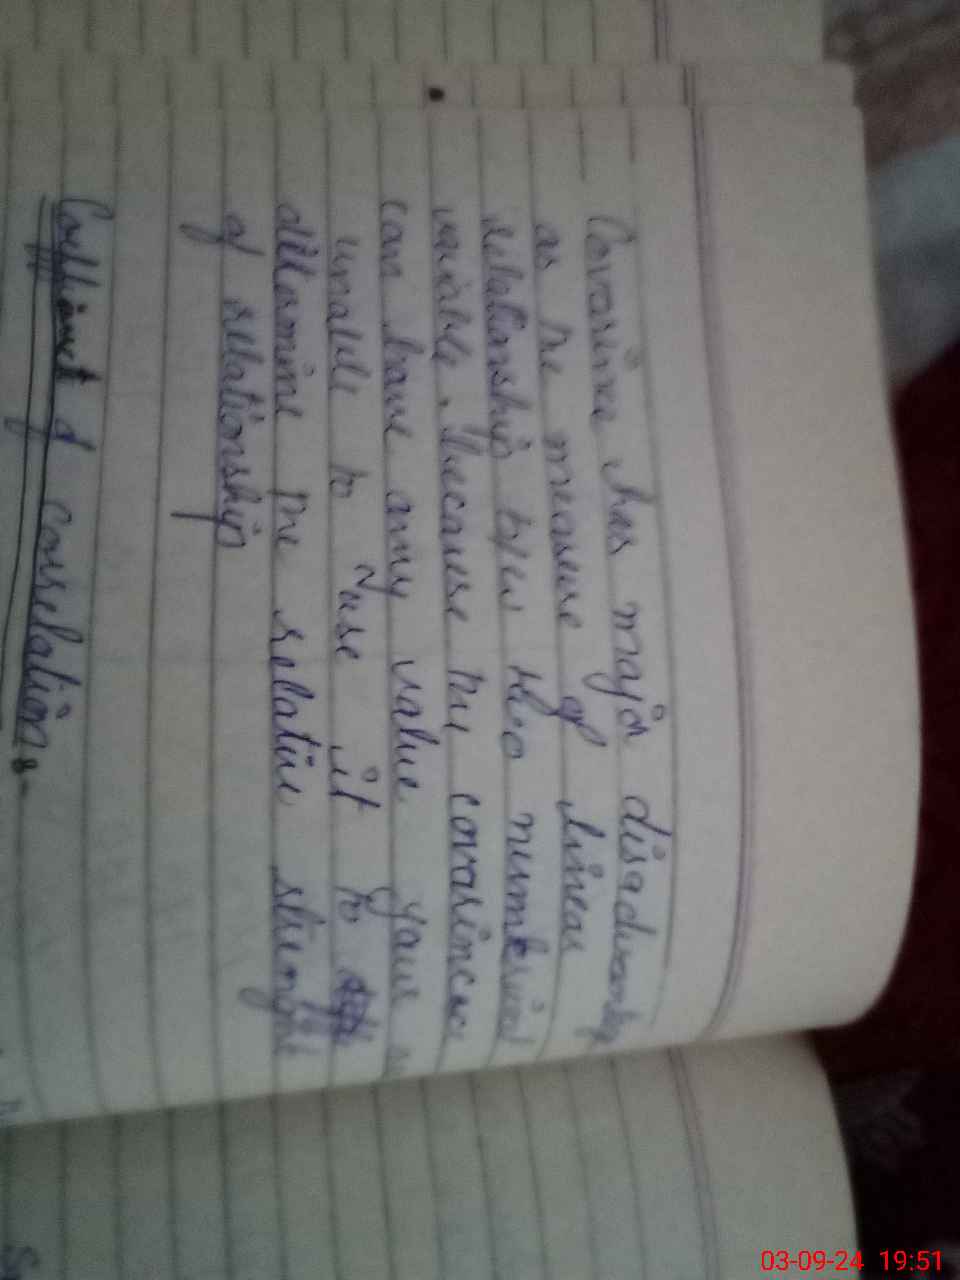 Covarince has major disadvantag
as the measure of linear
relationship b/w two numerical
variable. Because the covarince
can have any value your
unable to use it to
determine the relative strenght
of relationship
Coefficient of correlation :-
03-09-24 19:51